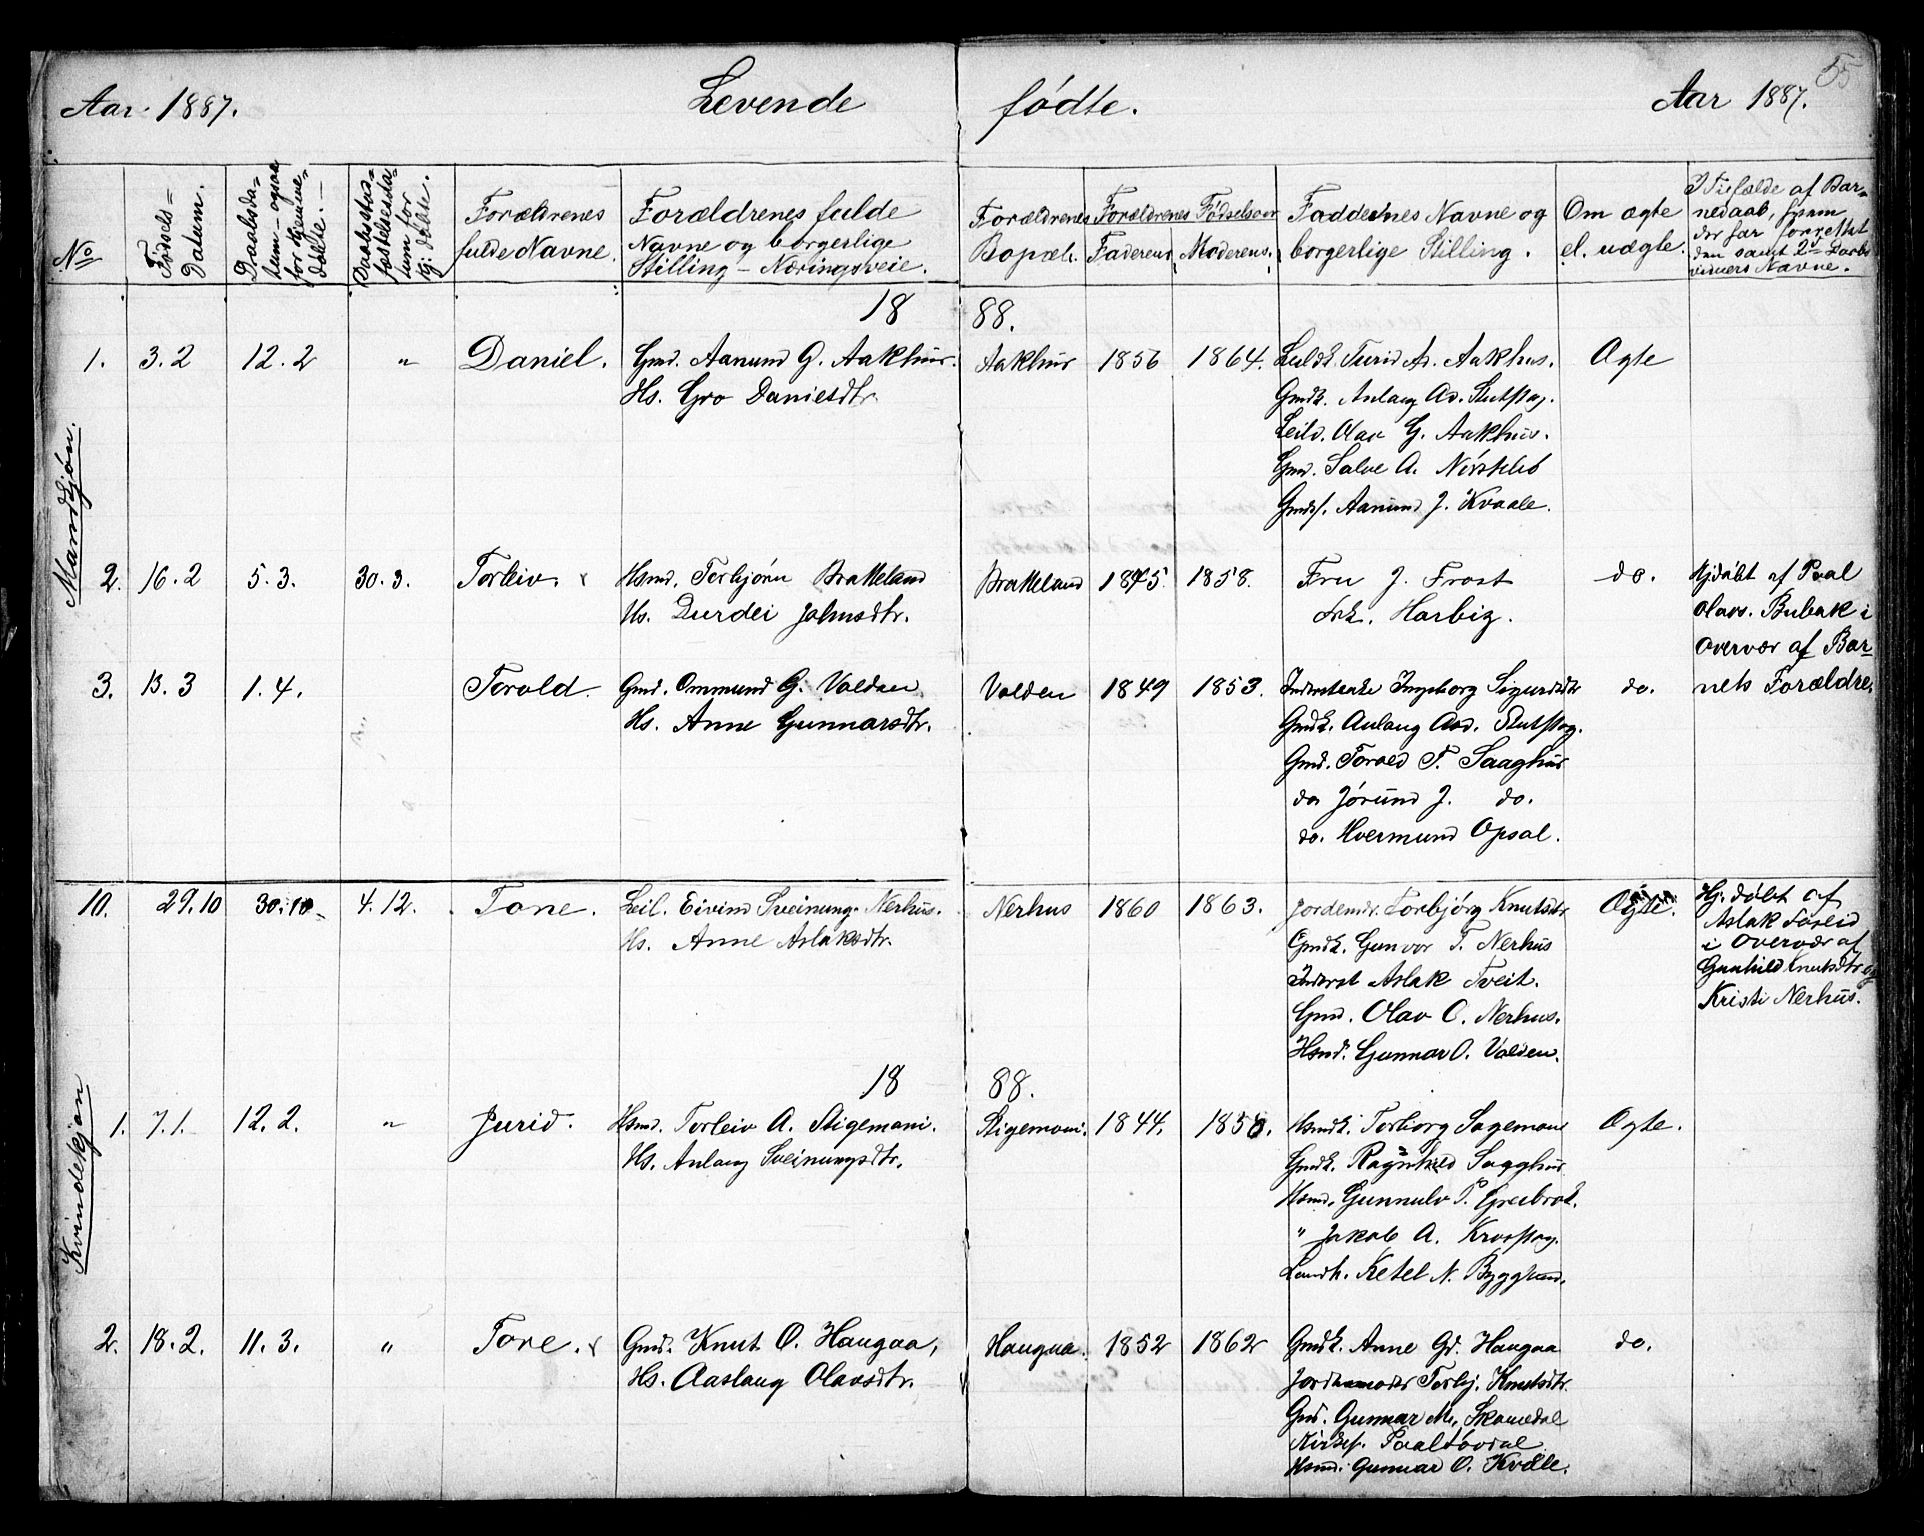 55
Aar 1887. Levende fødte. Aar 1887.
No
Fødsels-Datum.
Daabsda-
tum - ogsaa
for Hjemme-
døbte. -
Daabsstad-
fæstelsesda-
tum for
Hj. døbte.
Forældrenes
fulde Navne.
Forældrenes fulde
Navne og borgerlige
Stilling - Næringsveie.
Forældrenes
Bopæl.
Forældrenes Fødselsaar
Faderens Moderens.
Faddernes Navne og
borgerlige Stilling.
Om ægte
el. uægte.
I Tilfælde af Bar-
nedaab, hvem
der har forrettet
den samt 2de Daabs
vidners Navne.
Mandkjøn.
18 88.
1. 3.2 12.2 " Daniel. Gmd. Aanund G. Aakhus. Aakhus 1856 1864. Turid Aakhus. Ægte
Hs. Gro Danielsdtr. Gmdk. Aslaug
Leild. Olav G. Aakhus.
Gmd. Salve A.
Aanund J. Kvaale.
2. 16.2 5.3. 30.3. Torleiv. Hsmd. Terbjørn Brakeland Brakeland 1845. 1858. Fru J. Frost do. Hjdøbt af Paal
Hs. Durdei Johnsdtr. Frk. Harbiz. Olavs. Bubak i
Overvær af Bar-
3. 13.3 1.4. Torald. Gmd. Ommund G. Valden. Valden 1849 1853. Ingeborg Sigurdsdtr do. nets Forældre.
Hs. Anne Gunnarsdtr. Gmdk. Aslaug
Gmd. Torald T. Saaghus
do Jørund J. do.
do. Hvermund Opsal.
10. 29.10 30.10. 4.12. Tone. Leil. Eivind Sveinung. Nerhus. Nerhus 1860 1863. Jordemdr. Torbjørg Knutsdtr Ægte. Hj. døbt af
Hs. Anne Aslaksdtr. Gmdk. Gunvor T. Nerhus Aslak Foseid
Inderst Aslak Tveit. i Overvær af
Gmd. Olav O. Nerhus. Gunhild Knutsdtr og
Hsmd. Gunnar O. Valden. Kristi Nerhus.
Kvindekjøn
18 88.
1. 7.1. 12.2. " Jurid. Hsmd. Torleiv A. Stigemoni. Stigemoni. 1844. 1850. Hsmdk. Torborg Ægte.
Hs. Aslaug Sveinungsdtr. Gmdk. Ragnhild Saaghus
Hsmd. Gunnulv T. Greibrok.
" Jakob A.
Landh. Ketel N. Bygland.
2. 18.2. 11.3. " Tore. Gmd. Knut O. Haugaa, Haugaa. 1852 1862 Gmdk. Anne Gd. Haugaa do.
Hs. Aaslaug Olavsdtr. Jordemoder Torbj. Knutsdtr.
Gmd. Gunnar M. Skomedal
Kirkes. Paal
Hsmd. Gunnar O. Kvåle.